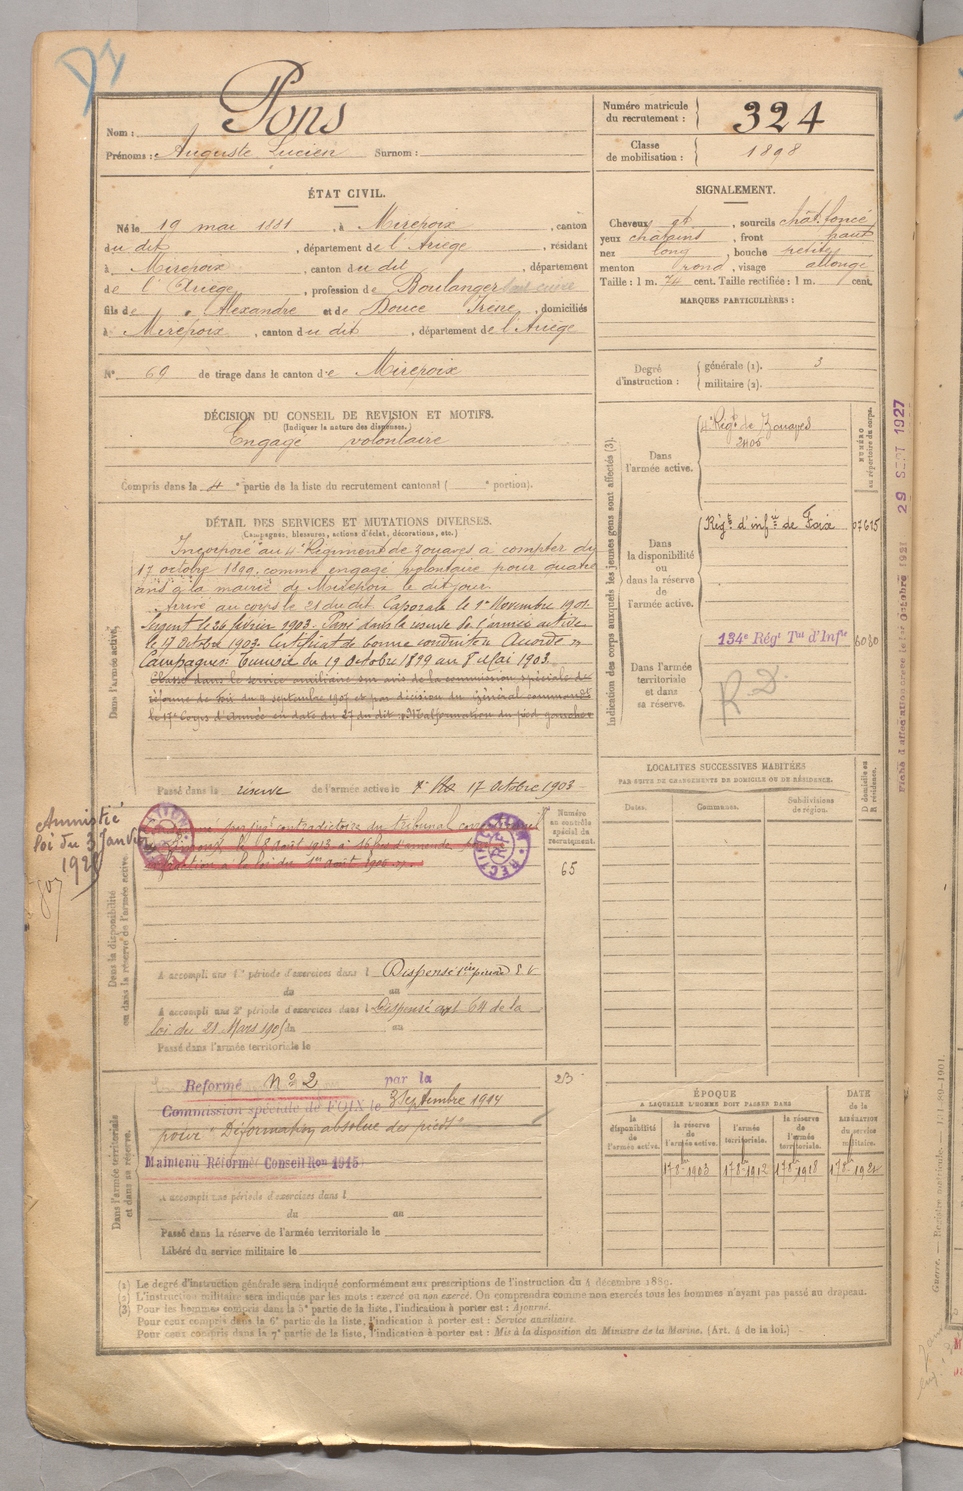 Nom : Pons
Prénoms : Auguste Lucien Surnom :
Numéro matricule du recrutement : 324
Classe de mobilisation : 1898
ÉTAT CIVIL.
Né le 19 mai 1881, à Mirepoix, canton
du dit, département de l'Ariège, résidant
à Mirepoix, canton du dit, département
de l'Ariège, profession de Boulanger
fils de Alexandre et de Douce Irène, domiciliés
à Mirepoix, canton du dit, département de l'Ariège
N° 69 de tirage dans le canton de Mirepoix
DÉCISION DU CONSEIL DE REVISION ET MOTIFS.
(Indiquer la nature des dispenses.)
Engagé volontaire
Compris dans la 4e partie de la liste du recrutement cantonal ( e portion).
DÉTAIL DES SERVICES ET MUTATIONS DIVERSES.
(Campagnes, blessures, actions d'éclat, décorations, etc.)
Dans l'armée active.
Incorporé au 4e Régiment de Zouaves à compter du
17 octobre 1899, comme engagé volontaire pour quatre
ans à la mairie de Mirepoix le dit jour.
Arrivé au corps le 21 du dit. Caporal le 1er Novembre 1901.
Sergent le 26 février 1903. Passé dans la réserve de l'armée active
le 17 Octobre 1903. Certificat de bonne conduite "Accordé"
Campagnes: Tunisie du 19 Octobre 1899 au 8 Mai 1903.
Classé dans le service auxiliaire sur avis de la commission spéciale de
réforme de Foix du 9 septembre 1907 et par décision du Général commandt
le 17e Corps d'Armée en date du 27 du dit "Malformation du pied gauche"
Passé dans la réserve de l'armée active le 17 Octobre 1903
Amnistié
loi du 3 Janvier
192
Dans la disponibilité ou dans la réserve de l'armée active.
par jugt contradictoire du tribunal correctionnel
le 8 août 1913 à 16 frs d'amende pour
infraction à la loi du 1er août 1905
RECTIFICATION
RF
Numéro au contrôle spécial du recrutement.
65
A accompli une 1re période d'exercices dans l Dispensé 1ère période
du au
A accompli une 2e période d'exercices dans l Dispensé art 64 de la
loi du 21 Mars 1905 du au
Passé dans l'armée territoriale le
Dans l'armée territoriale et dans sa réserve.
Reformé N° 2 par la
Commission spéciale de FOIX le 3 Septembre 1914
pour "Déformation absolue des pieds"
Maintenu Réformé Conseil Ron 1915
23
A accompli une période d'exercices dans l
du au
Passé dans la réserve de l'armée territoriale le
Libéré du service militaire le
SIGNALEMENT.
Cheveux et, sourcils chât. foncé
yeux châtains, front haut
nez long, bouche petite
menton rond, visage allongé
Taille : 1 m. 74 cent. Taille rectifiée : 1 m. cent.
MARQUES PARTICULIÈRES :
Degré d'instruction : générale (1). 3
militaire (2).
Indication des corps auxquels les jeunes gens sont affectés (3).
NUMÉRO au répertoire du corps.
Dans l'armée active.
4e Régt de Zouaves
2406
Dans la disponibilité ou dans la réserve de l'armée active.
Régt d'infie de Foix 07615
Dans l'armée territoriale et dans sa réserve.
134e Régt Tal d'Infie 6080
R.D.
29 SEPT 1927
LOCALITÉS SUCCESSIVES HABITÉES
PAR SUITE DE CHANGEMENTS DE DOMICILE OU DE RÉSIDENCE.
Dates.
Communes.
Subdivisions de région.
D domicile ou R résidence.
ÉPOQUE
A LAQUELLE L'HOMME DOIT PASSER DANS
la disponibilité de l'armée active.
la réserve de l'armée active.
l'armée territoriale.
la réserve de l'armée territoriale.
DATE de la LIBÉRATION du service militaire.
17 8bre 1903
17 8bre 1912
17 8bre 1918
17 8bre 1924
(1) Le degré d'instruction générale sera indiqué conformément aux prescriptions de l'instruction du 4 décembre 1889.
(2) L'instruction militaire sera indiquée par les mots : exercé ou non exercé. On comprendra comme non exercés tous les hommes n'ayant pas passé au drapeau.
(3) Pour les hommes compris dans la 5e partie de la liste, l'indication à porter est : Ajourné.
Pour ceux compris dans la 6e partie de la liste, l'indication à porter est : Service auxiliaire.
Pour ceux compris dans la 7e partie de la liste, l'indication à porter est : Mis à la disposition du Ministre de la Marine. (Art. 4 de la loi.)
Guerre. — Registre matricule. — 121-89-1901.